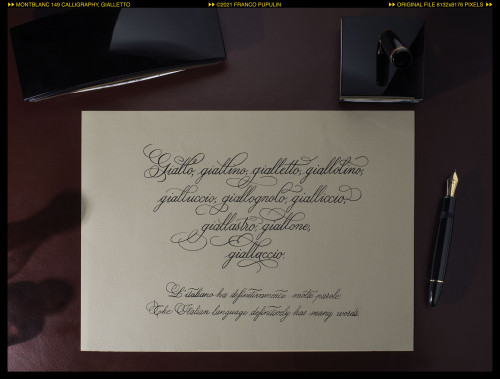 MONTBLANC 149 CALLIGRAPHY, GIALLETTO ©2021 FRANCO PUPULIN ORIGINAL FILE 8132x6176 PIXELS
Giallo, giallino, gialletto, giallolino,
gialluccio, giallognolo, gialliccio,
giallastro, giallone,
giallaccio.
L'italiano ha definitivamente molte parole.
The Italian language definitely has many words.